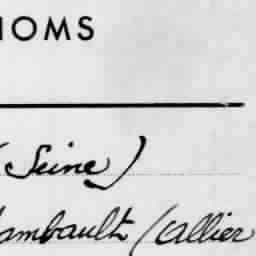 NOMS
(Seine)
ambault (Allier